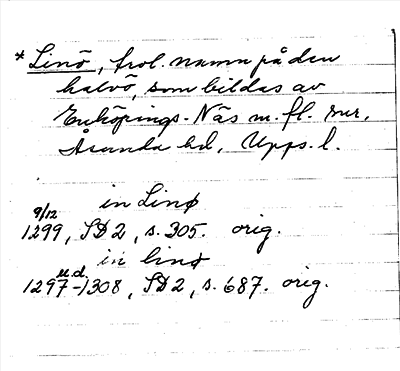 * Linö, trol. namn på den
halvö, som bildas av
Enköpings-Näs m. fl. snr,
Åsunda hd, Upps. l.
in Linø
9/12
1299, SD 2, s. 305. orig.
in linø
u.d.
1297-1308, SD 2, s. 687. orig.